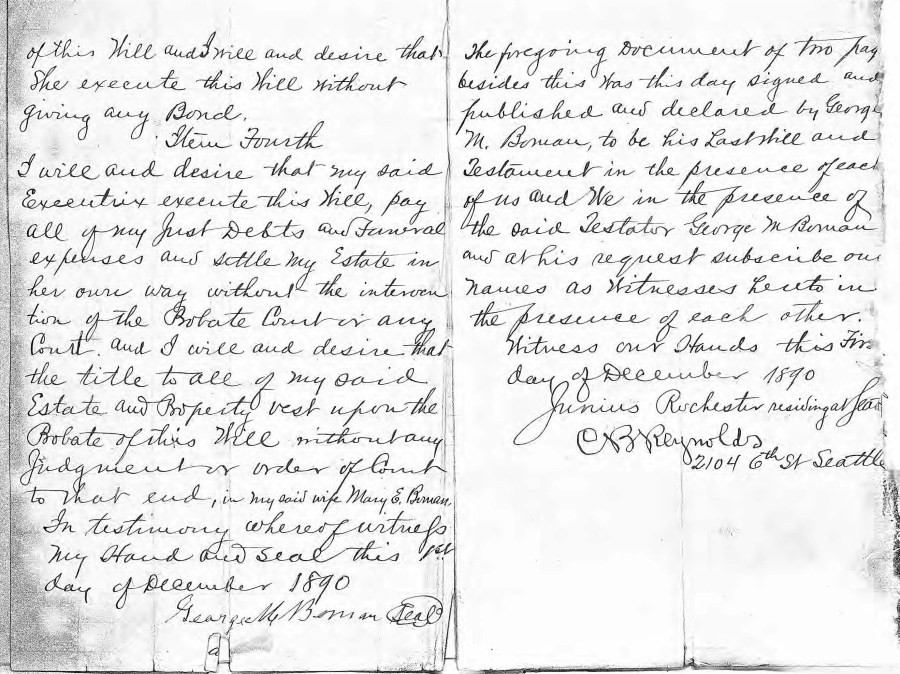 of this Will and I will and desire that
She execute this Will without
giving any Bond.
Item Fourth
I will and desire that my said
Executrix execute this Will, pay
all of my Just Debts and Funeral
expenses and settle my Estate in
her own way without the interven
tion of the Probate Court or any
Court. and I will and desire that
the title to all of my said
Estate and Property vest upon the
Probate of this Will without any
Judgment or order of Court
to that end, in my said wife Mary E. Boman.
In testimony whereof witness
my Hand and Seal this 1st
day of December 1890
George M Boman Seal
The foregoing Document of two pag
besides this was this day signed and
published and declared by George
M. Boman, to be his Last Will and
Testament in the presence of each
of us and We in the presence of
the said Testator George M Boman
and at his request subscribe our
names as Witnesses hereto in
the presence of each other.
Witness our Hands this Firs
day of December 1890
Junius Rochester residing at Seat
C B Reynolds
2104 6th St Seattle